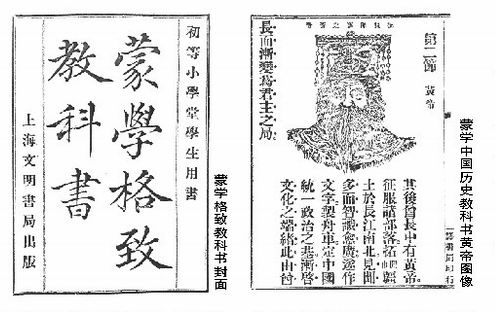 初等小學堂學生用書
蒙學格致
教科書
上海文明書局出版
蒙学格致教科书封面
第二節 黃帝
其後酋長中有黃帝
征服諸部落拓
土於長江南北見聞
多而智識愈廣遂作
文字製舟車定中國
統一政治之基漸啓
文化之端緒此由酋
長而漸變爲君主之局
蒙学中国历史教科书黄帝图像